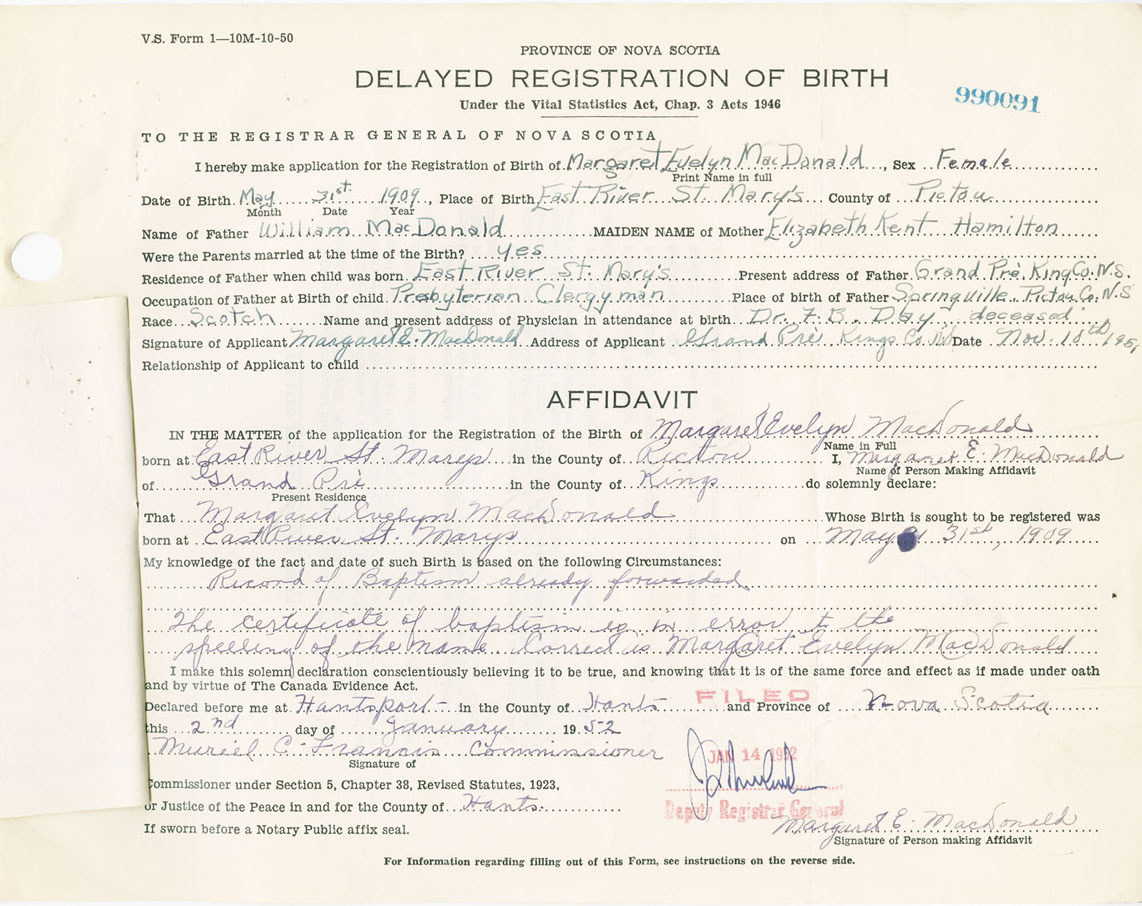 V.S. Form 1—10M-10-50
PROVINCE OF NOVA SCOTIA
DELAYED REGISTRATION OF BIRTH
Under the Vital Statistics Act, Chap. 3 Acts 1946
990091
TO THE REGISTRAR GENERAL OF NOVA SCOTIA
I hereby make application for the Registration of Birth of Margaret Evelyn MacDonald, Sex Female
Print Name in full
Date of Birth May 31st 1909, Place of Birth East River St. Mary's County of Pictou
Month Date Year
Name of Father William MacDonald MAIDEN NAME of Mother Elizabeth Kent Hamilton
Were the Parents married at the time of the Birth? yes
Residence of Father when child was born East River St. Mary's Present address of Father Grand Pré King Co. N.S.
Occupation of Father at Birth of child Presbyterian Clergyman Place of birth of Father Springville, Pictou Co. N.S
Race Scotch Name and present address of Physician in attendance at birth Dr. F. B. Day, deceased
Signature of Applicant Margaret E. MacDonald Address of Applicant Grand Pré Kings Co NS Date Nov. 10th 1951
Relationship of Applicant to child
AFFIDAVIT
IN THE MATTER of the application for the Registration of the Birth of Margaret Evelyn MacDonald
Name in Full
born at East River St. Marys in the County of Pictou I, Margaret E. MacDonald
Name of Person Making Affidavit
of Grand Pré in the County of Kings do solemnly declare:
Present Residence
That Margaret Evelyn MacDonald Whose Birth is sought to be registered was
born at East River St. Marys on May 31st, 1909
My knowledge of the fact and date of such Birth is based on the following Circumstances:
Record of Baptism already forwarded.
The certificate of baptism is in error to the
spelling of the name. Correct is Margaret Evelyn MacDonald
I make this solemn declaration conscientiously believing it to be true, and knowing that it is of the same force and effect as if made under oath
and by virtue of The Canada Evidence Act.
FILED
Declared before me at Hantsport in the County of Hants and Province of Nova Scotia
this 2nd day of January 1952
JAN 14 1952
Muriel C. Francis Commissioner
Signature of
Commissioner under Section 5, Chapter 38, Revised Statutes, 1923,
or Justice of the Peace in and for the County of Hants.
Deputy Registrar General
Margaret E. MacDonald
If sworn before a Notary Public affix seal.
Signature of Person making Affidavit
For Information regarding filling out of this Form, see instructions on the reverse side.